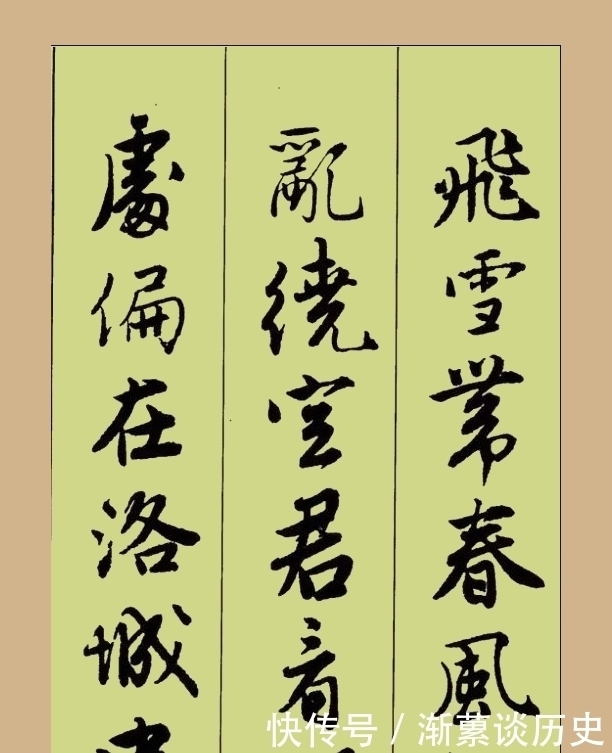 飛雪帶春風
亂繞空君看
處偏在洛城
快传号 / 谈历史